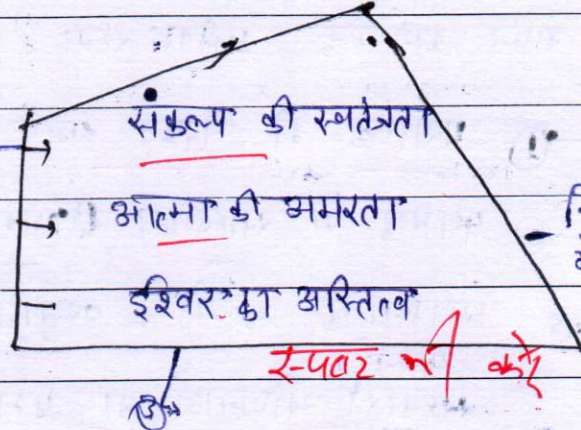 संकल्प की स्वतंत्रता
आत्मा की अमरता
ईश्वर का अस्तित्व
स्पष्ट भी करें